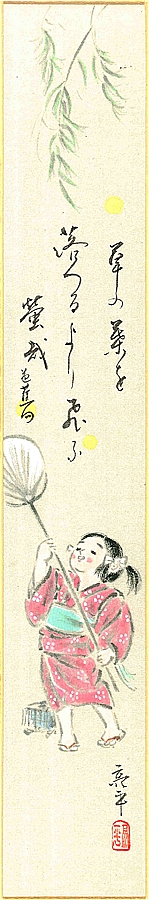 草の葉を
落つるより飛ふ
螢哉
芭蕉
亮平